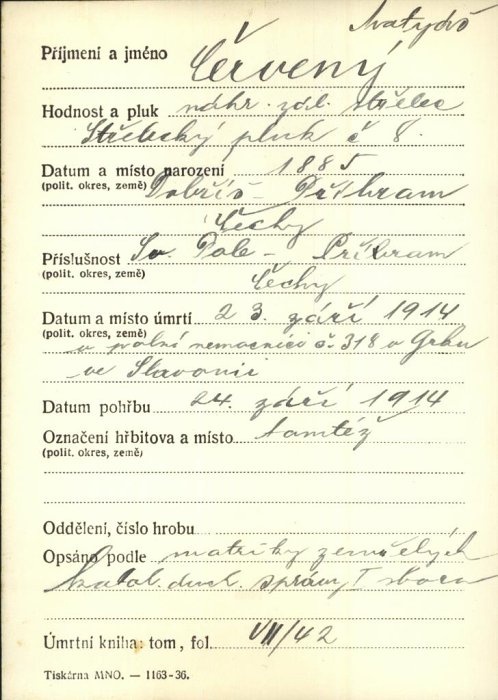 Příjmení a jméno
Červený
Hodnost a pluk náhr. zál. střelec
Střelecký pluk č 8.
Datum a místo narození 1885
(polit. okres, země) Dobříš - Příbram
Čechy
Příslušnost Sv. Pole - Příbram
(polit. okres, země)
Čechy
Datum a místo úmrtí 23. září 1914
(polit. okres, země)
v polní nemocnici č. 318 v Grku
ve Slavonii
Datum pohřbu 24. září 1914
Označení hřbitova a místo tamtéž
(polit. okres, země)
Oddělení, číslo hrobu
Opsáno podle matriky zemřelých
katol. duch. správy I sboru
Úmrtní kniha: tom, fol. VII/42
Tiskárna MNO. — 1163-36.